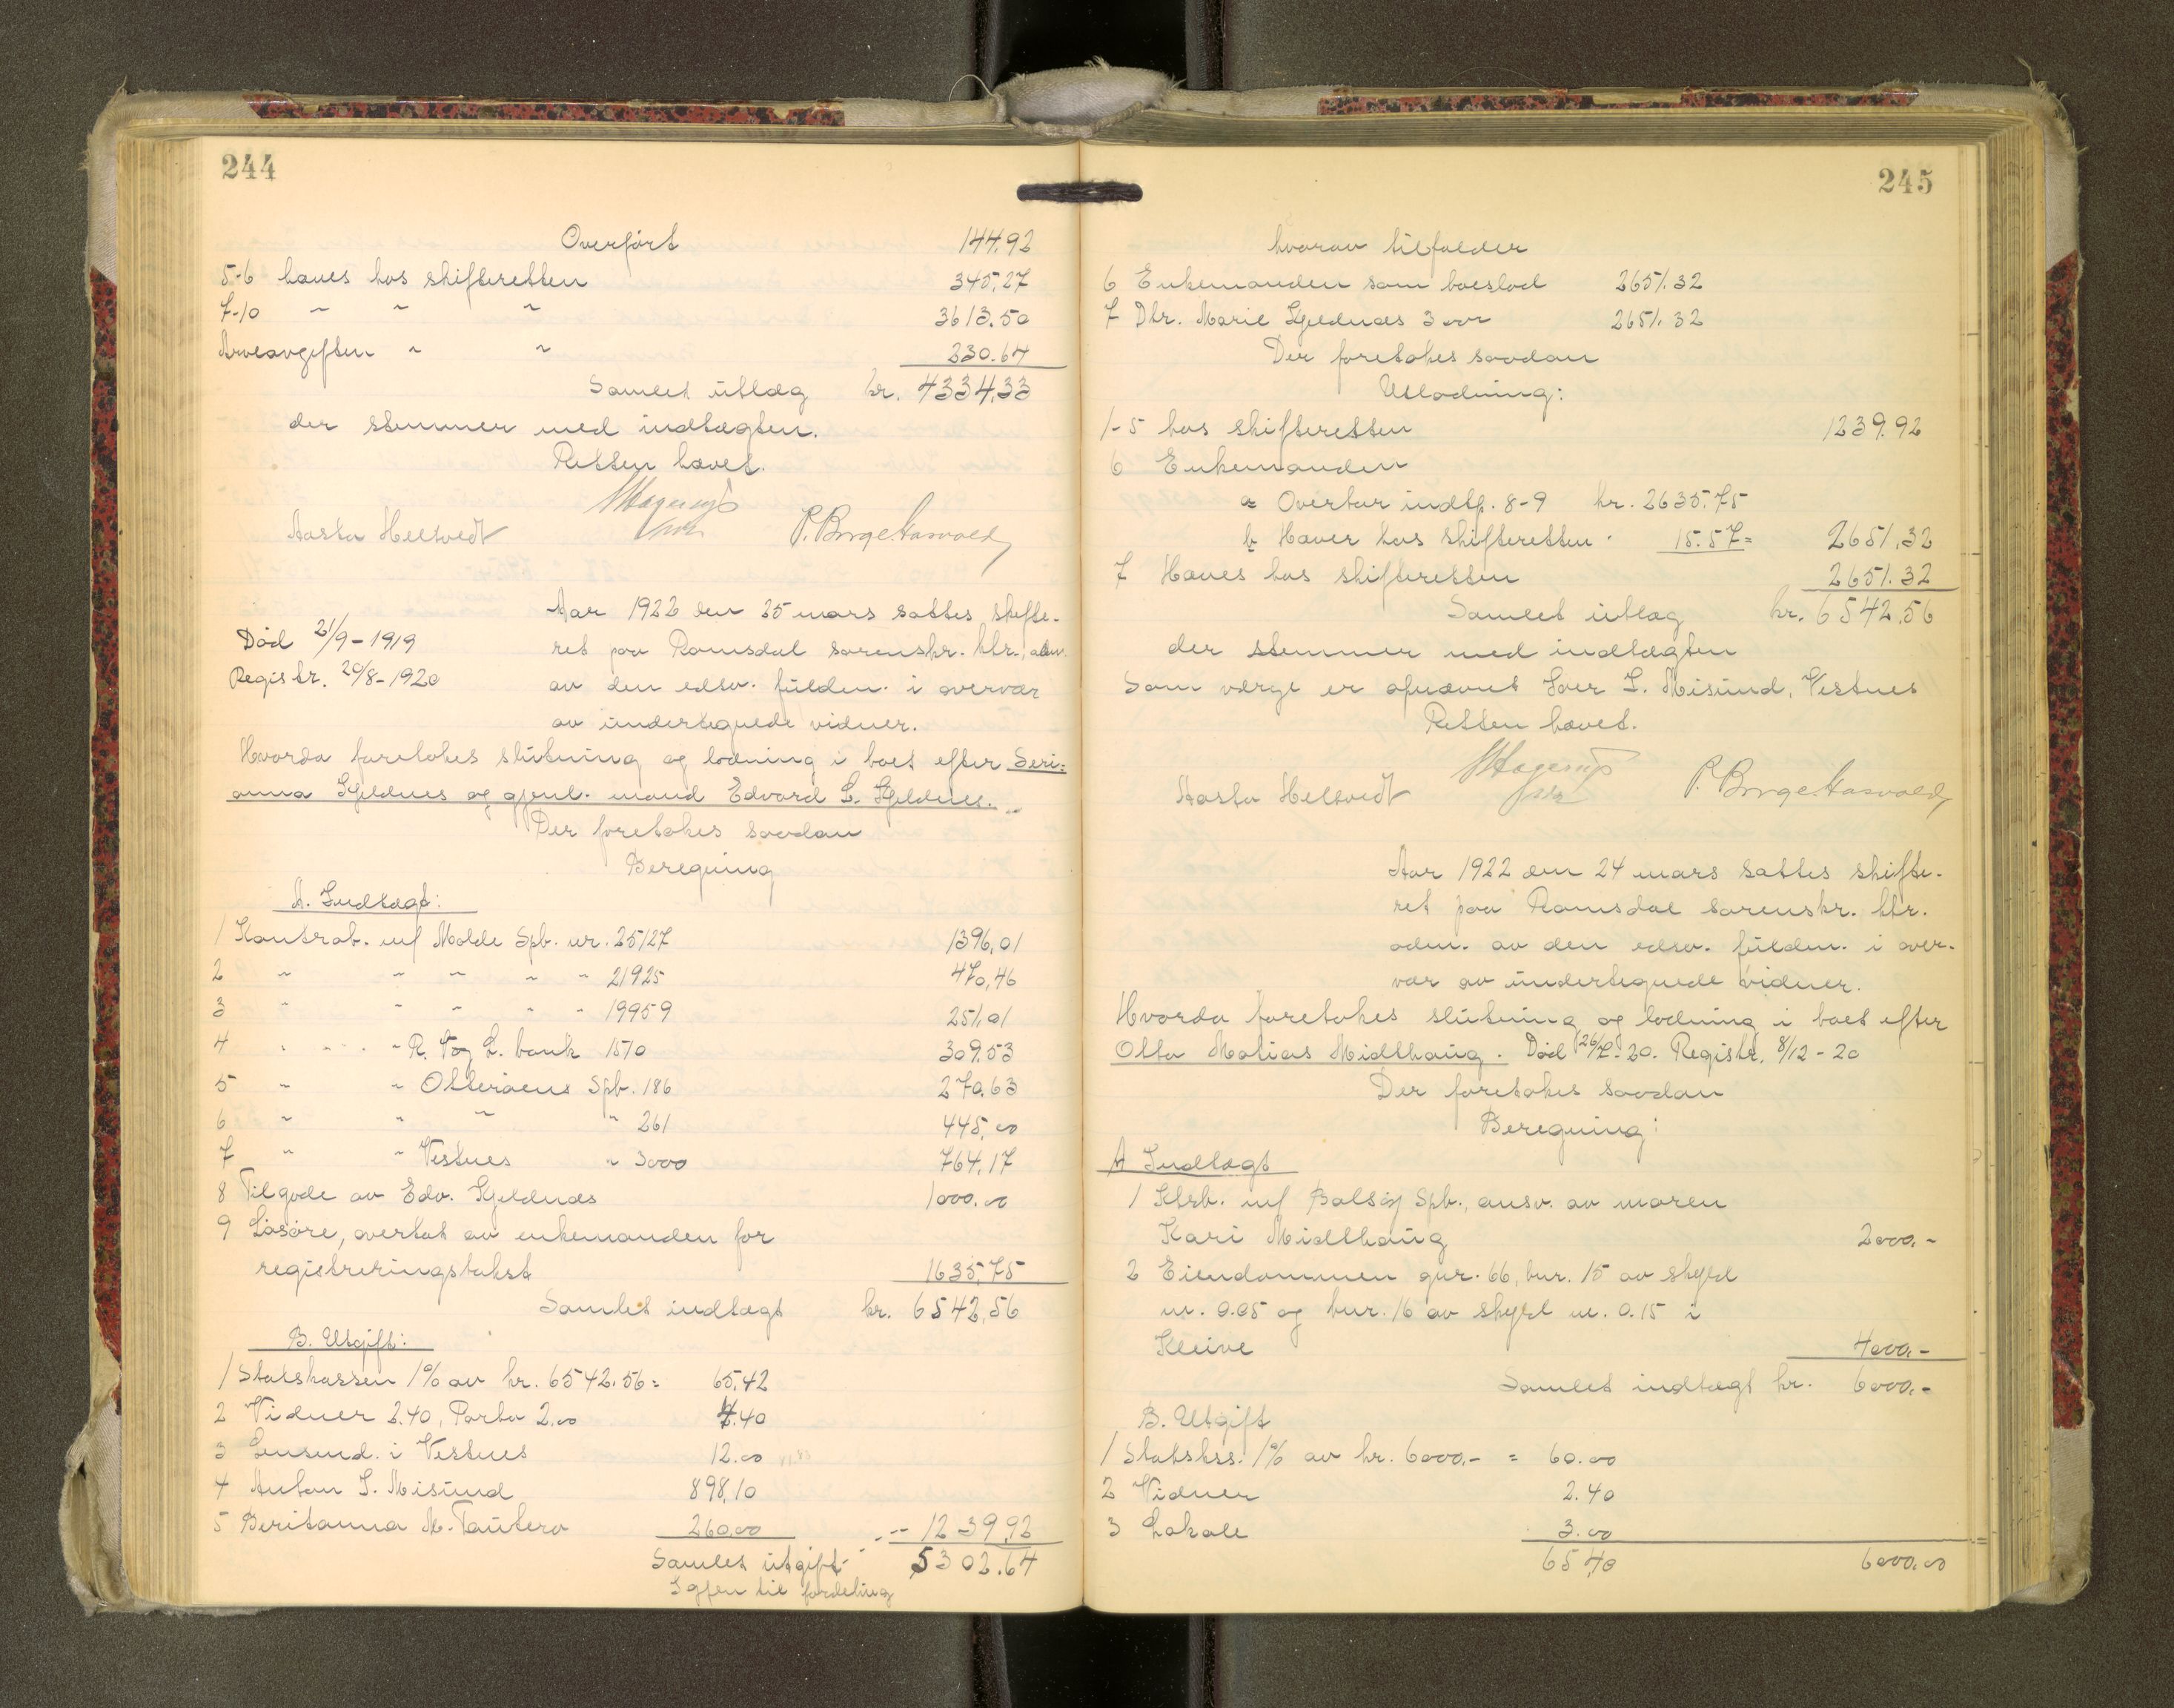 244
Overført 144.92
5-6 haves hos skifteretten 345.27
7-10 " " " 3613.50
Arveavgiften " " 230.64
Samlet utlæg kr. 4334.33
der stemmer med indtægten.
Retten hævet.
Aasta Heltvedt P. Borge Aasvold
Aar 1922 den 25 mars sattes skifte-
Død 21/9-1919
ret paa Romsdal sorenskr. ktr., adm.
Registr. 20/8-1920
av den edsv. fuldm. i overvær
av undertegnede vidner.
Hvorda foretokes slutning og lodning i boet efter Seri=
anna Gjeldnes og gjenl. mand Edvard L. Gjeldnes.
Der foretokes saadan
Beregning
A. Indtægt:
1 Kontrab. m/ Molde Spb. nr. 25127 1396,01
2 " " " " " 21925 470,46
3 " " " " " 19959 251,01
4 " " " " R. V og L. bank 1510 309.53
5 " " Otterøens Spb. 186 270.63
6 " " " " 261 445,00
7 " " Vestnes " 3000 764,17
8 Tilgode av Edv. Gjeldnæs 1000.00
9 Løsøre, overtat av enkemanden for
registreringstakst 1635,75
Samlet indtægt kr. 6542,56
B. Utgift:
1 Statskassen 1% av kr. 6542.56 = 65,42
2 Vidner 2.40, Porto 2.00 4.40
3 Lensmd. i Vestnes 12.00
4 Anton I. Misund 898,10
5 Beritanna M. Tautero 260.00 -- 1239,92
Samlet utgift 5302.64
Igjen til fordeling
245
hvorav tilfalder
6 Enkemanden som boeslod 2651.32
7 Dtr. Marie Gjeldnæs 3 aar 2651.32
Der foretokes saadan
Utlodning:
1-5 hos skifteretten 1239.92
6 Enkemanden
a Overtar indtp. 8-9 kr. 2635.75
b Haver hos skifteretten " 15.57 = 2651,32
7 Haves hos skifteretten 2651.32
Samlet utlæg kr. 6542,56
der stemmer med indtægten
Som værge er opnævnt Iver L. Misund, Vestnes
Retten hævet.
Aasta Heltvedt P. Borge Aasvold
Aar 1922 den 24 mars sattes skifte-
ret paa Romsdal sorenskr. ktr.
adm. av den edsv. fuldm. i over-
vær av undertegnede vidner.
Hvorda foretokes slutning og lodning i boet efter
Otto Matias Midthaug. Død 26/7-20. Registr. 8/12-20
Der foretokes saadan
Beregning:
A Indtægt
1 Ktrb. m/ Bolsøy Spb., ansv. av moren
Kari Midthaug 2000.-
2 Eiendommen gnr. 66, bnr. 15 av skyld
m. 0.05 og bnr. 16 av skyld m. 0.15 i
Kleive 4000.-
Samlet indtægt kr. 6000.-
B. Utgift
1 Statskss. 1% av kr. 6000.- = 60.00
2 Vidner 2.40
3 Lokale 3.00
65,40 6000.00